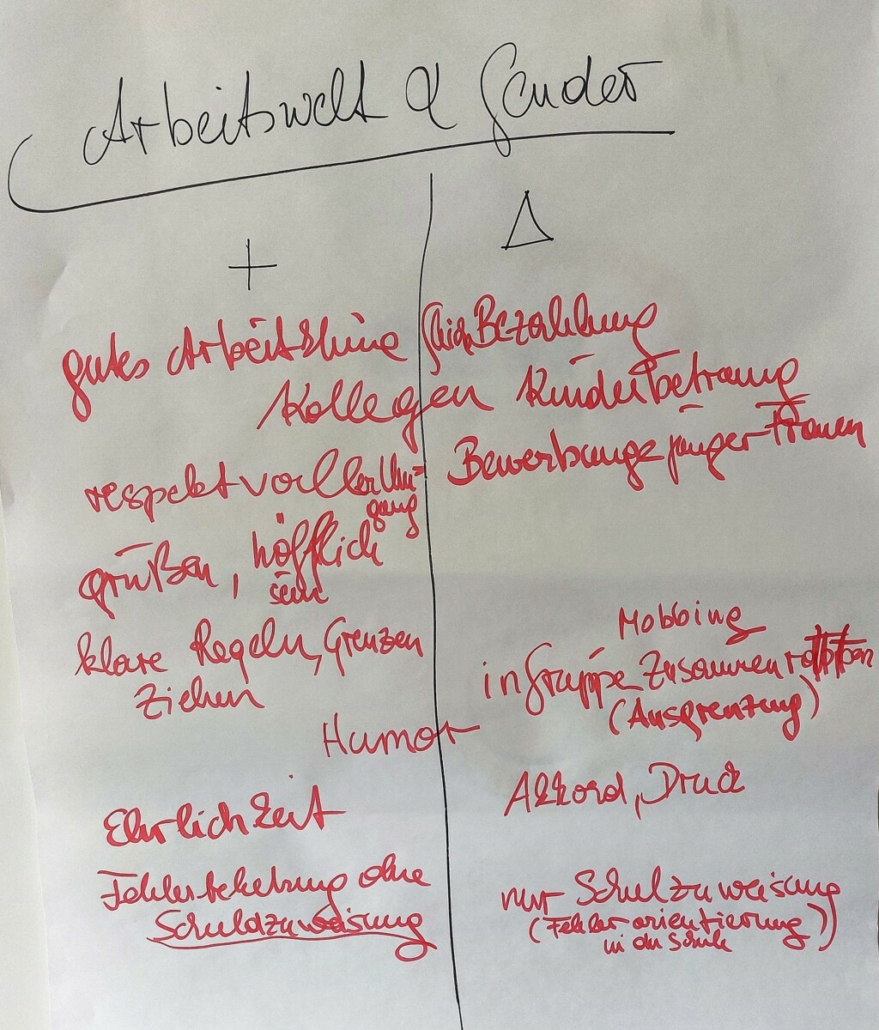 Arbeitswelt & Gender
+
Δ
gutes Arbeitsklima
gleiche Bezahlung
Kollegen
Kinderbetreuung
respektvoller Um-
gang
Bewerbunge junger Frauen
grüßen, höfflich
sein
klare Regeln, Grenzen
Ziehen
Mobbing
in Gruppe Zusammenrotten
(Ausgrenzung)
Humor
Akkord, Druck
Ehrlichkeit
Fehlerbehebung ohne
Schuldzuweisung
nur Schulzuweisung
(Fehlerorientierung)
in der Schule